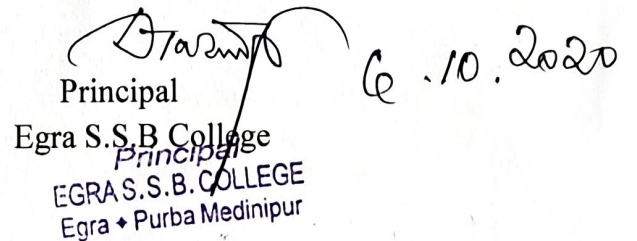 6.10.2020
Principal
Egra S.S.B College
Principal
EGRA S.S.B. COLLEGE
Egra ✦ Purba Medinipur